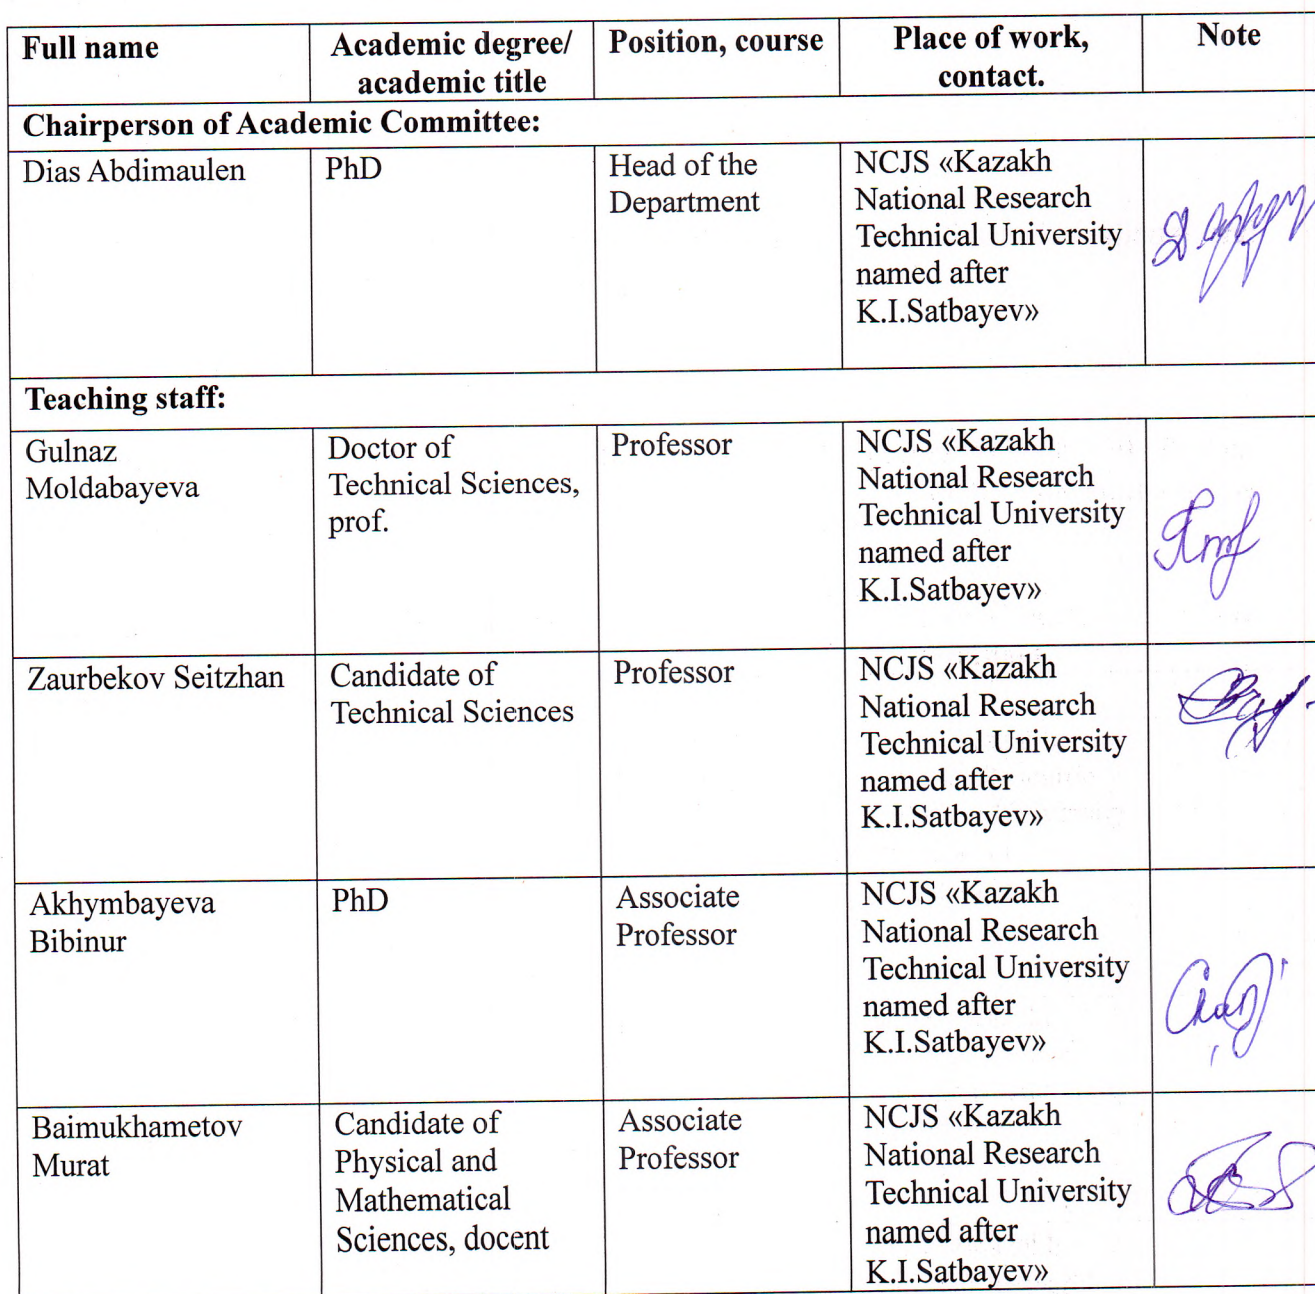 Full name
Academic degree/
academic title
Position, course
Place of work,
contact.
Note
Chairperson of Academic Committee:
Dias Abdimaulen
PhD
Head of the
Department
NCJS «Kazakh
National Research
Technical University
named after
K.I.Satbayev»
Teaching staff:
Gulnaz
Moldabayeva
Doctor of
Technical Sciences,
prof.
Professor
NCJS «Kazakh
National Research
Technical University
named after
K.I.Satbayev»
Zaurbekov Seitzhan
Candidate of
Technical Sciences
Professor
NCJS «Kazakh
National Research
Technical University
named after
K.I.Satbayev»
Akhymbayeva
Bibinur
PhD
Associate
Professor
NCJS «Kazakh
National Research
Technical University
named after
K.I.Satbayev»
Baimukhametov
Murat
Candidate of
Physical and
Mathematical
Sciences, docent
Associate
Professor
NCJS «Kazakh
National Research
Technical University
named after
K.I.Satbayev»